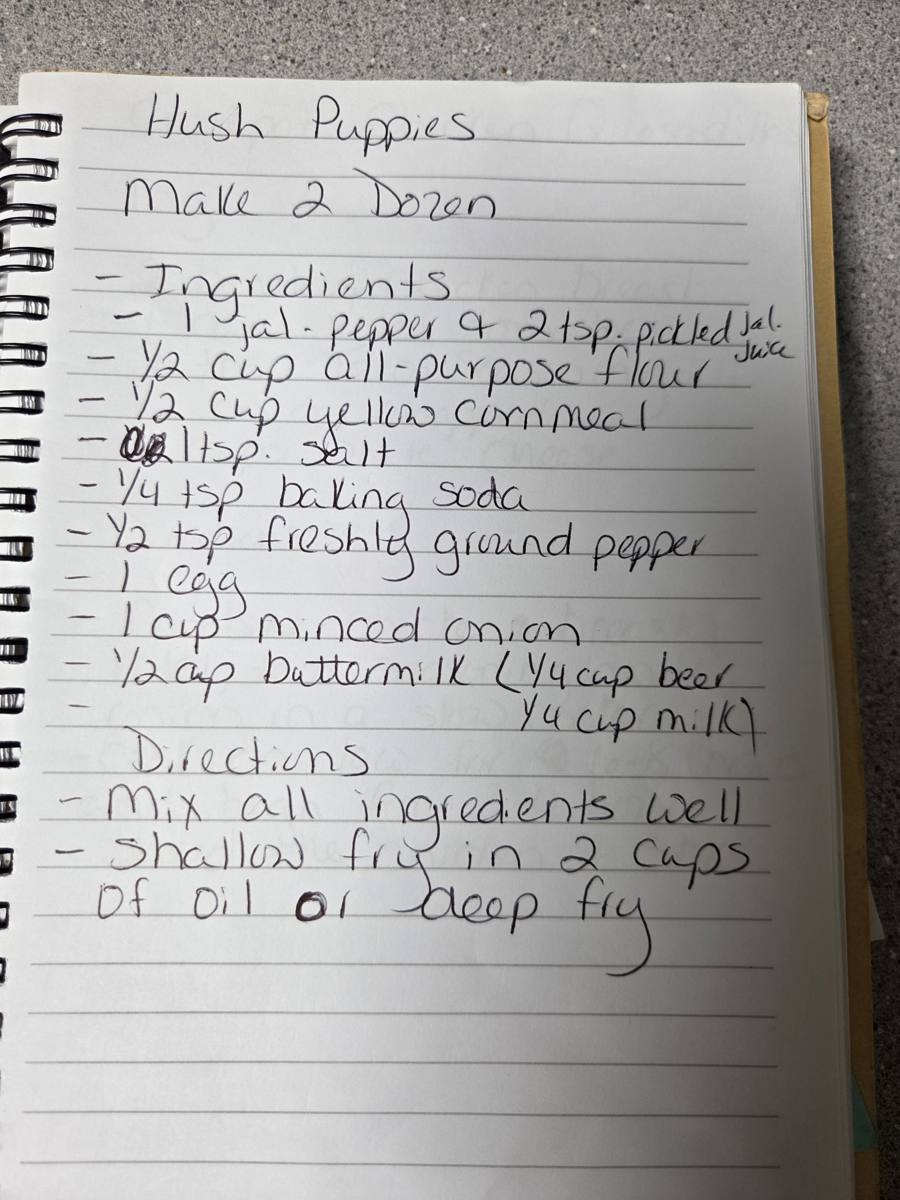 Hush Puppies
Make 2 Dozen
- Ingredients
- 1 jal. pepper & 2 tsp. pickled jal. juice
- 1/2 cup all-purpose flour
- 1/2 cup yellow cornmeal
- 1 tsp. salt
- 1/4 tsp baking soda
- 1/2 tsp freshly ground pepper
- 1 egg
- 1 cup minced onion
- 1/2 cup buttermilk (1/4 cup beer
- 1/4 cup milk)
Directions
- Mix all ingredients well
- Shallow fry in 2 cups
of oil or deep fry